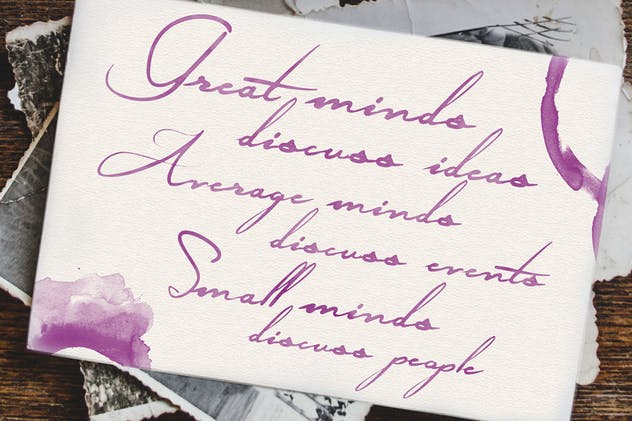 Great minds
discuss ideas
Average minds
discuss events
Small minds
discuss people